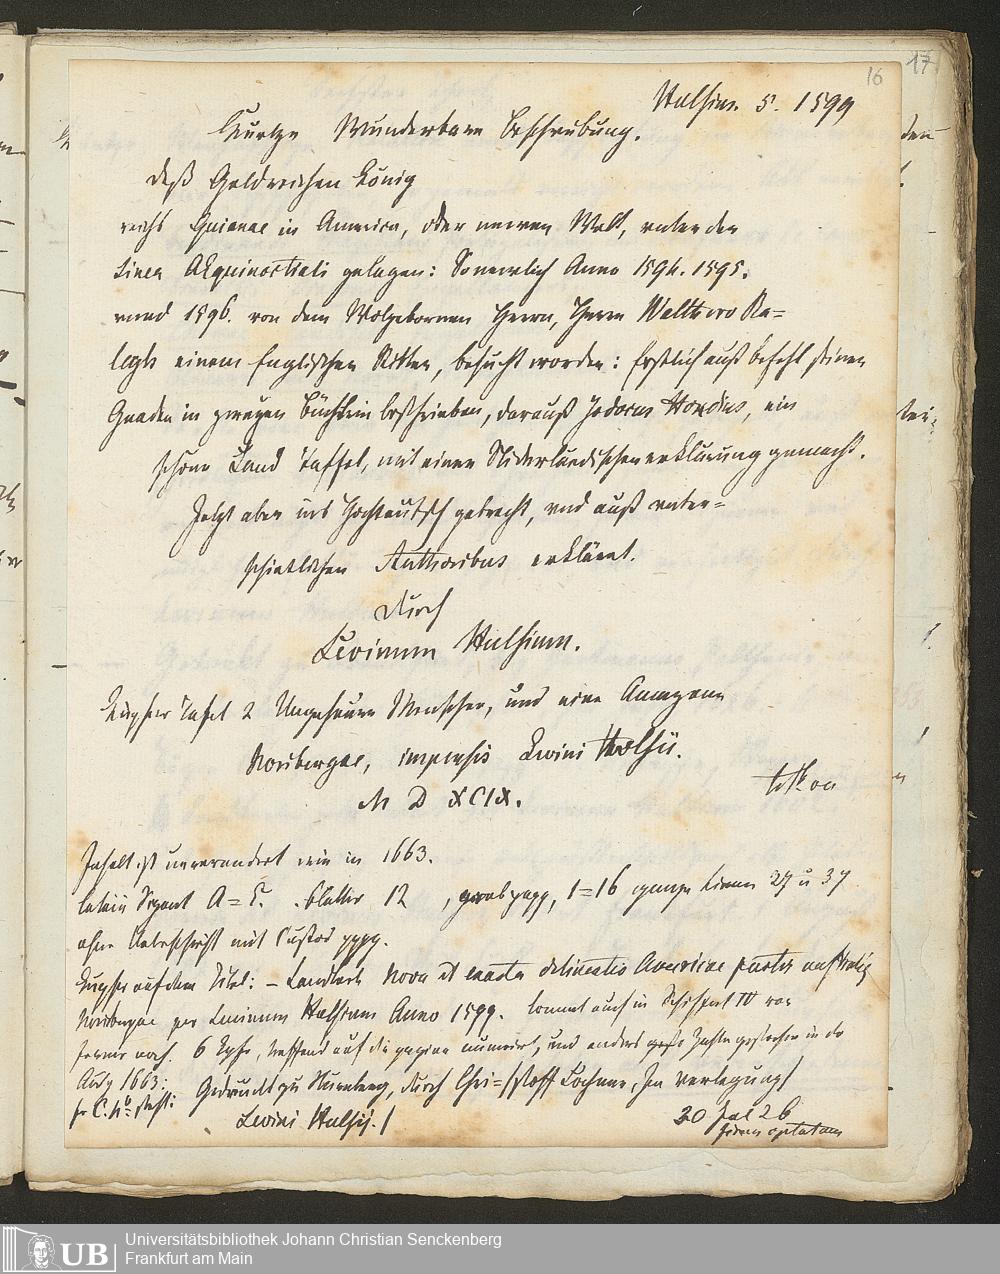 16 17
Hulsius. 5. 1599
Kurtze Wunderbare Beschreibung.
deß Goldreichen König
reichs Guianae in America, oder newen Welt, vnter der
Linea AEquinoctiali gelegen: So newlich Anno 1594. 1595.
vnnd 1596. von dem Wolgebornen Herrn, Herrn Walthero Ra=
legh einem Englischen Ritter, besucht worden: Erstlich auß befehl seiner
Gnaden in zweyen Büchlein beschrieben, darauß Jodocus Hondius, ein
schöne Land Taffel, mit einer Niderländischen erklärung gemacht.
Jetzt aber ins Hochteutsch gebracht, vnd auß vnter=
schietlichen Authoribus erkläret.
Durch
Levinum Hulsium.
Kupfer Tafel 2 Ungeheure Menschen, und eine Amazone
Noribergae, impensis Levini Hulsii.
M D XCIX.
Inhalt ist unverändert wie in 1663.
Signat A= . Blätter 12 , 1=16 ganze Linien 37 u 37
ohne Ueberschrift mit Custos pppg.
Kupfer auf dem Titel: – Landkarte Nova et exacta delineatio Americae partis australis
Noribergae per Levinum Hulsium Anno 1599. kommt auch in Schiffart IV vor
ferner noch. 6 Kpfr, auf die pagina numerirt, und anders große Zahlen gestochen in der
Ausg 1663:
Gedruckt zu Nürnberg, durch Chri=/stoff Lochner, In Verlegung/
Levini Hulsij./
Universitätsbibliothek Johann Christian Senckenberg
Frankfurt am Main
UB